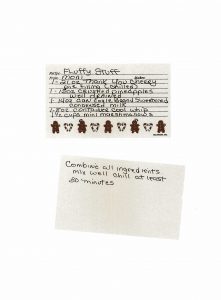 Recipe: Fluffy Stuff
From: Mom
1-21 oz Thank You Cherry
pie filling (chilled)
1-20oz crushed pineapples
well drained
1-14oz can Eagle Brand Sweetened
condensed milk
1-8oz container Cool whip
1½ cups mini marshmallows
Combine all ingredients
mix well chill at least
30 minutes